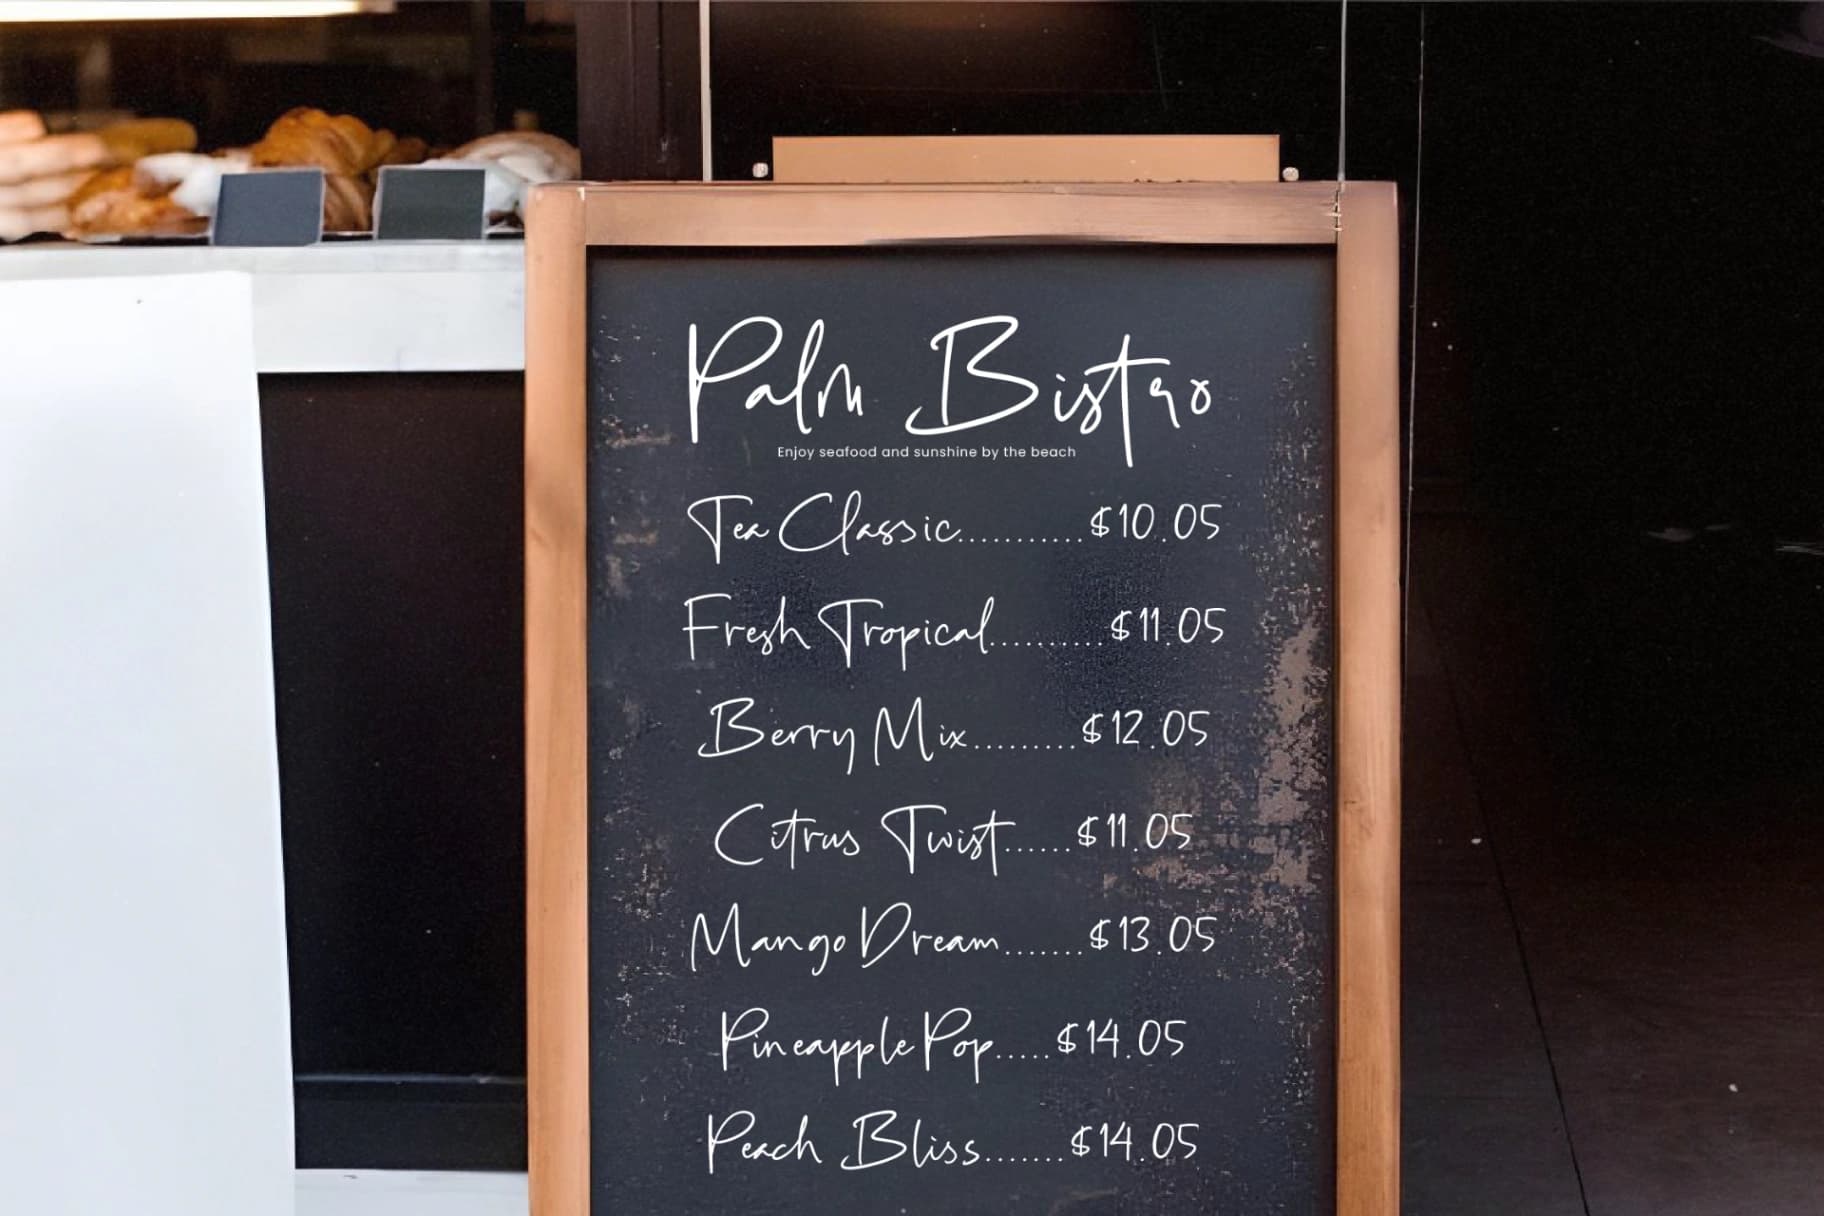 Palm Bistro
Enjoy seafood and sunshine by the beach
Tea Classic...........$10.05
Fresh Tropical..........$11.05
Berry Mix.........$12.05
Citrus Twist......$11.05
Mango Dream.......$13.05
Pineapple Pop.....$14.05
Peach Bliss.......$14.05